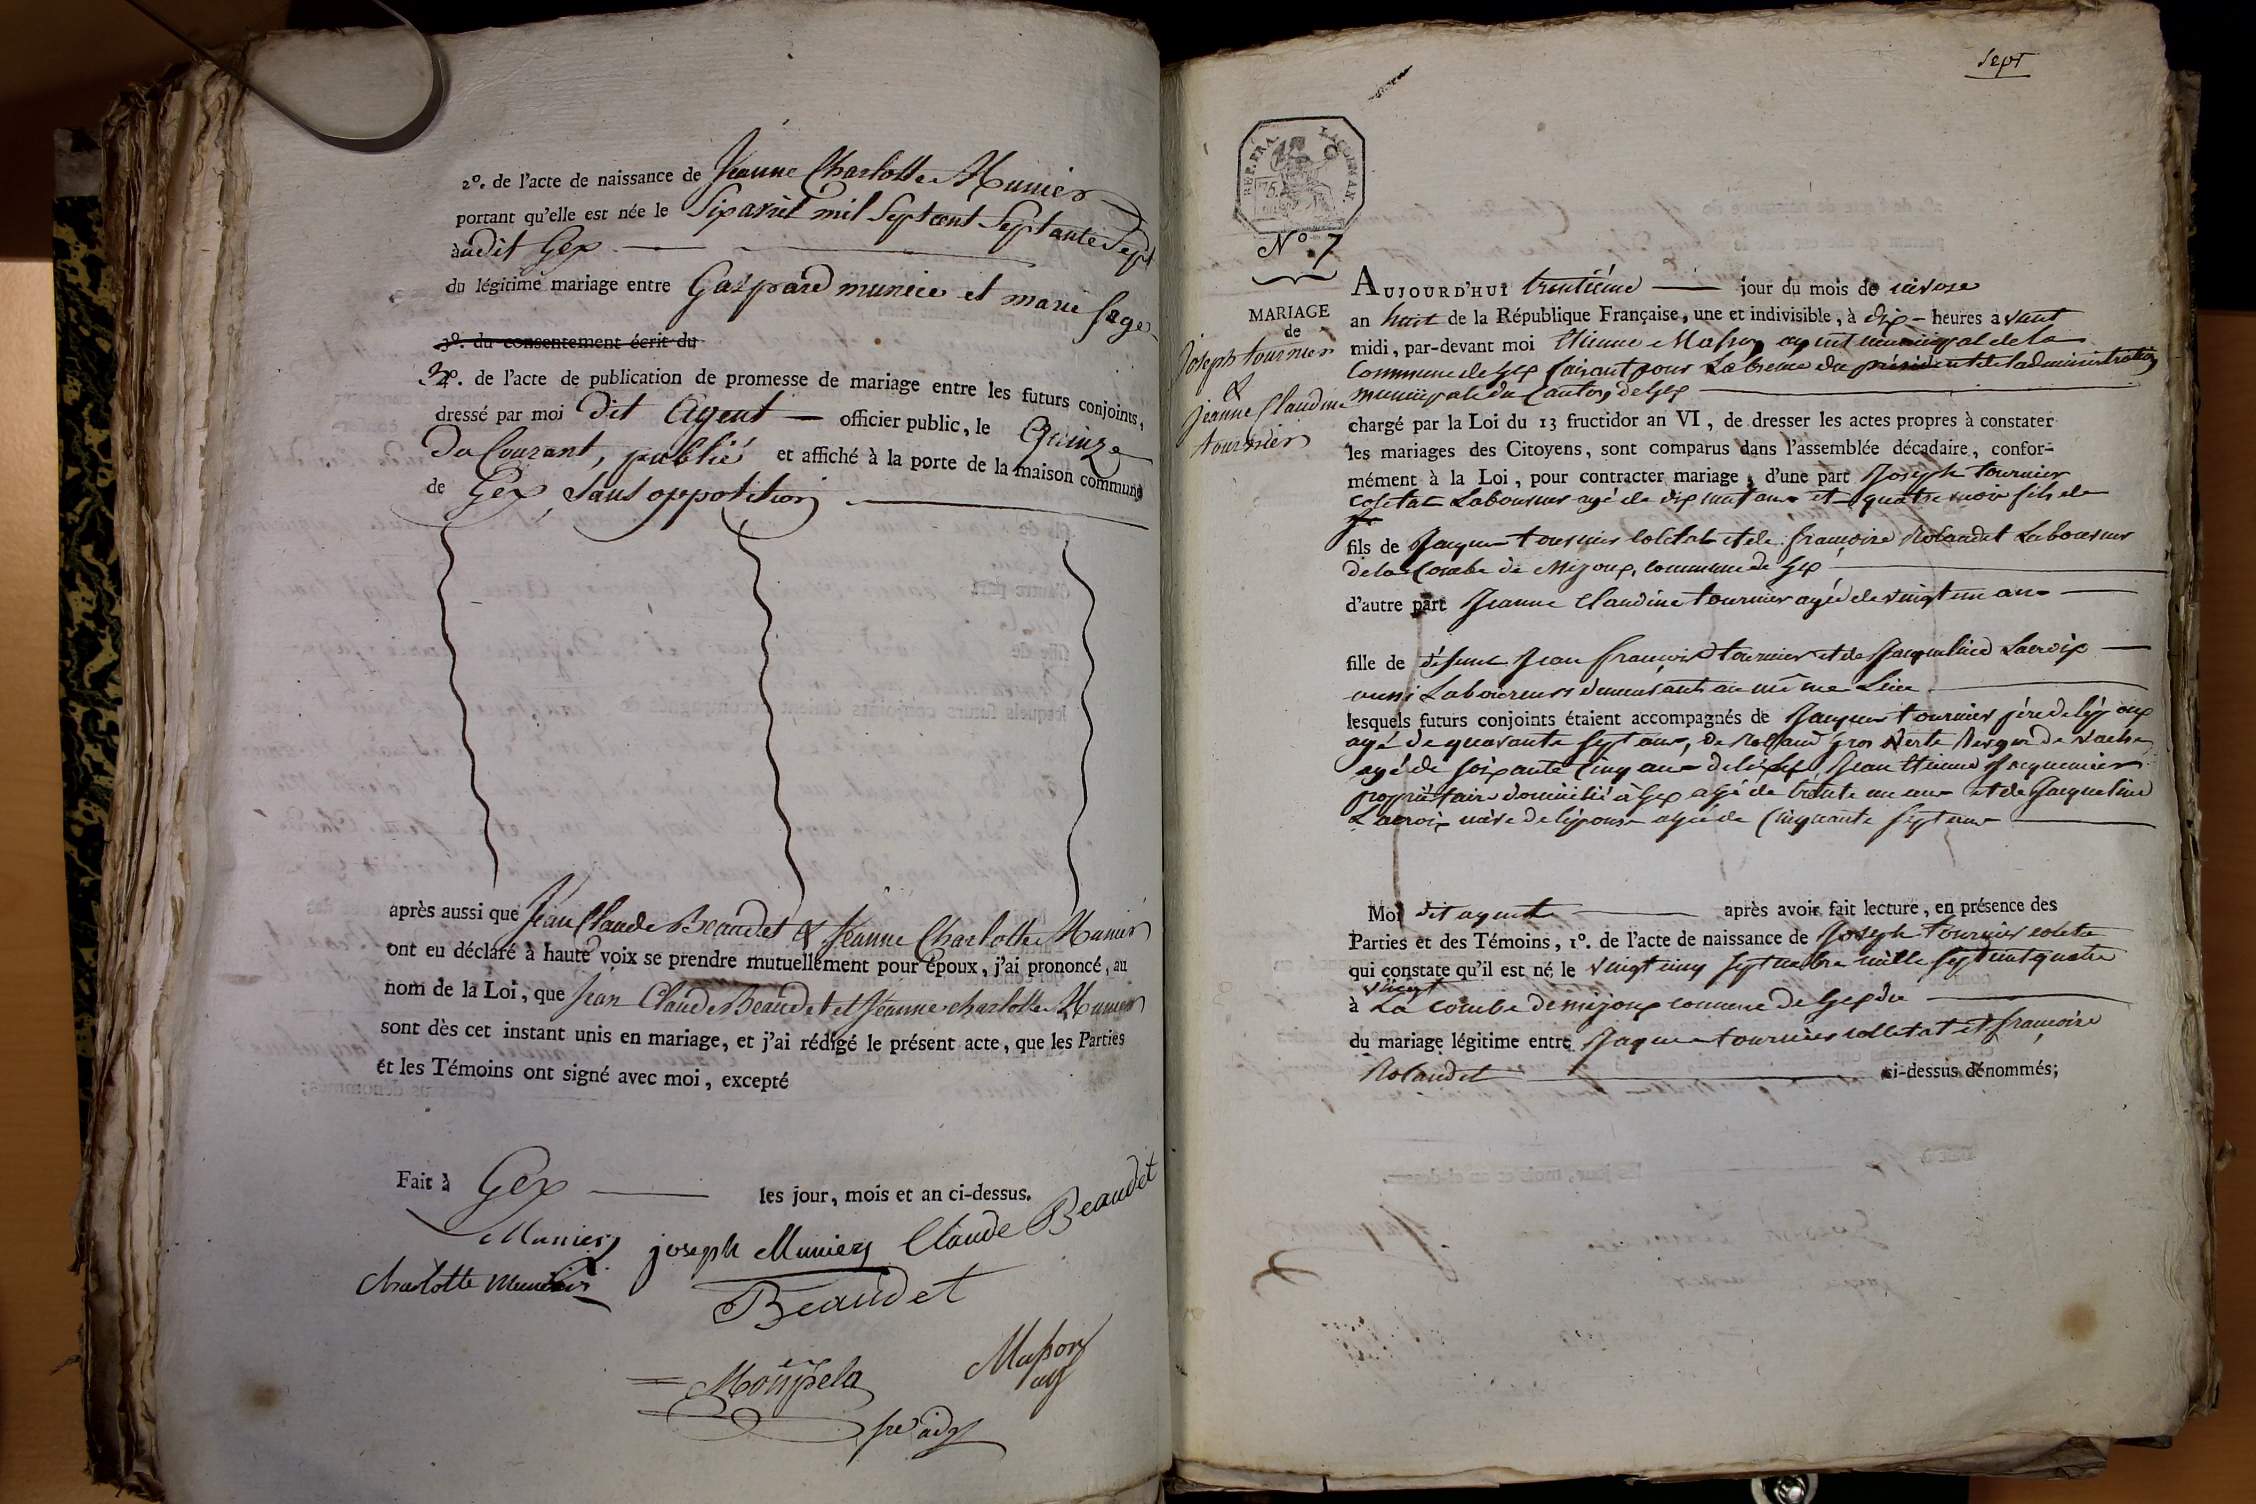 2°. de l'acte de naissance de Jeanne Charlotte Munier
portant qu'elle est née le Six avril mil Sept cent Septante Sept
audit Gex
du légitime mariage entre Gaspard munier et marie sage
3°. du consentement écrit du
3°. de l'acte de publication de promesse de mariage entre les futurs conjoints,
dressé par moi dit Agent officier public, le Quinze
Du Courant, publié et affiché à la porte de la maison commune
de Gex, Sans opposition
après aussi que Jean Claude Beaudet & Jeanne Charlotte Munier
ont eu déclaré à haute voix se prendre mutuellement pour époux, j'ai prononcé, au
nom de la Loi, que Jean Claude Beaudet et Jeanne charlotte Munier
sont dès cet instant unis en mariage, et j'ai rédigé le présent acte, que les Parties
et les Témoins ont signé avec moi, excepté
Fait à Gex les jour, mois et an ci-dessus.
Munier joseph Munier Claude Beaudet
Charlotte Munier
Beaudet
Masson
sept
REP. FRA.
N° 7
MARIAGE
de
Joseph tournier
&
Jeanne Claudine
tournier
AUJOURD'HUI trentiéme jour du mois de nivose
an huit de la République Française, une et indivisible, à dix heures avant
midi, par-devant moi Etienne Masson agent municipal de la
Commune de Gex faisant pour L'absence du président de l'administration
municipale du Canton de Gex
chargé par la Loi du 13 fructidor an VI, de dresser les actes propres à constater
les mariages des Citoyens, sont comparus dans l'assemblée décadaire, confor-
mément à la Loi, pour contracter mariage, d'une part Joseph tournier
Coletat Laboureur agé de dix neuf ans et quatre mois fils de
fils de Jaques tournier Coletat et de françoise Rolandet Laboureur
de la Combe de Mijoux, commune de Gex
d'autre part Jeanne Claudine tournier agée de vingt un ans
fille de défunt Jean françois tournier et de Jacqueline Lacroix
aussi Laboureurs demeurant au même Lieu
lesquels futurs conjoints étaient accompagnés de Jaques tournier père de l'époux
agé de quarante sept ans, de Rolland Gros
agé de soixante Cinq ans Jean Etienne Jacquemier
propriétaire domicilié à Gex agé de trente un ans et de Jacqueline
Lacroix mère de l'épouse agée de Cinquante sept ans
Moi dit agent après avoir fait lecture, en présence des
Parties et des Témoins, 1°. de l'acte de naissance de Joseph tournier coleta
qui constate qu'il est né le vingt cinq septembre mille sept cent quatre
vingt
à La Combe de mijoux commune de Gex
du mariage légitime entre Jaques tournier colletat et françoise
Rolandet ci-dessus dénommés;